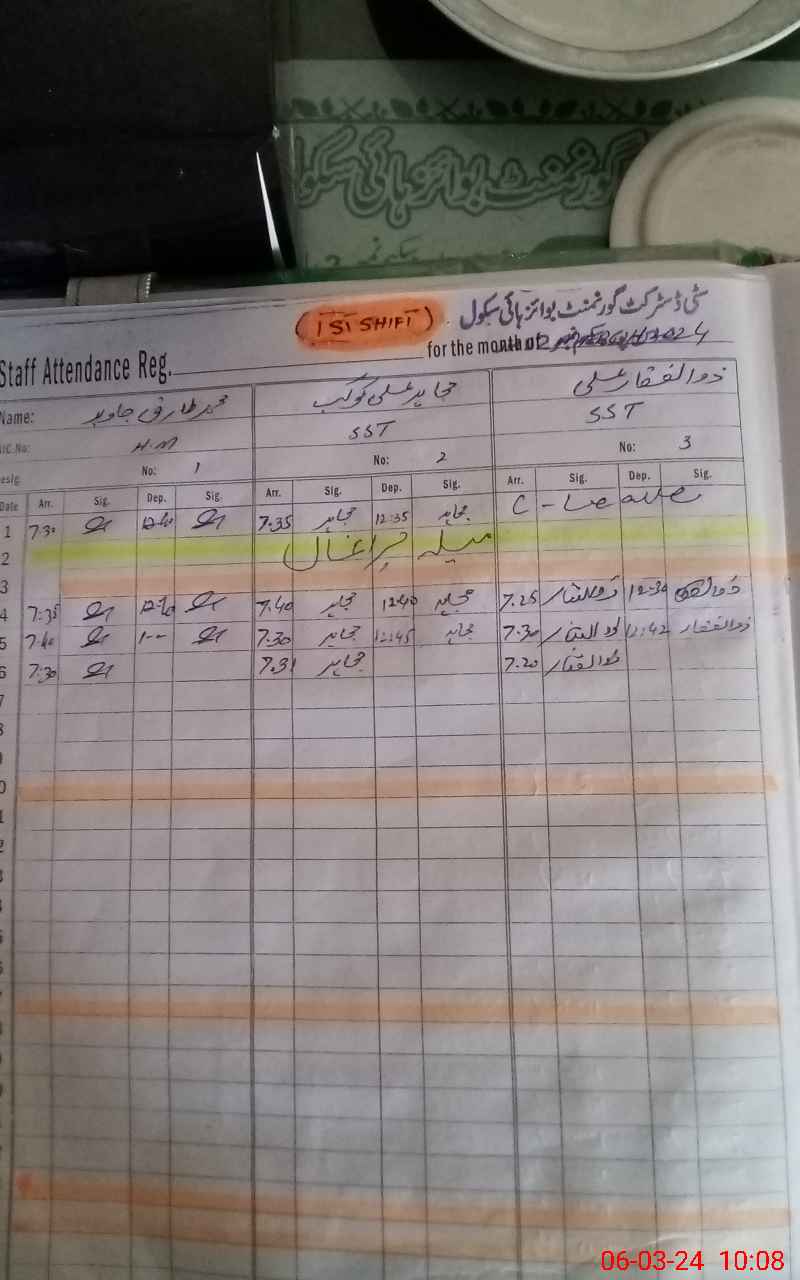 گورنمنٹ بوائز ہائی سکول
سٹی ڈسٹرکٹ گورنمنٹ بوائز ہائی سکول
(1ST SHIFT)
Staff Attendance Reg. for the month of 2024
Name: محمد طارق جاوید مجاہد علی کوکب ذوالفقار علی
NIC.No: H.M SST SST
Desig. No: 1 No: 2 No: 3
Date Arr. Sig. Dep. Sig. Arr. Sig. Dep. Sig. Arr. Sig. Dep. Sig.
1 7.30 12-40 7.35 مجاہد 12:35 مجاہد C - Leave
2 میلہ چراغاں
3
4 7:35 7.40 مجاہد 12:40 مجاہد 7.25 ذوالفقار 12:30 ذوالفقار
5 7.40 1-- 7.30 مجاہد 12:45 مجاہد 7.30 ذوالفقار 12:42 ذوالفقار
6 7:30 7.31 مجاہد 7.20 ذوالفقار
7
8
9
0
1
2
3
4
5
6
7
8
9
06-03-24 10:08